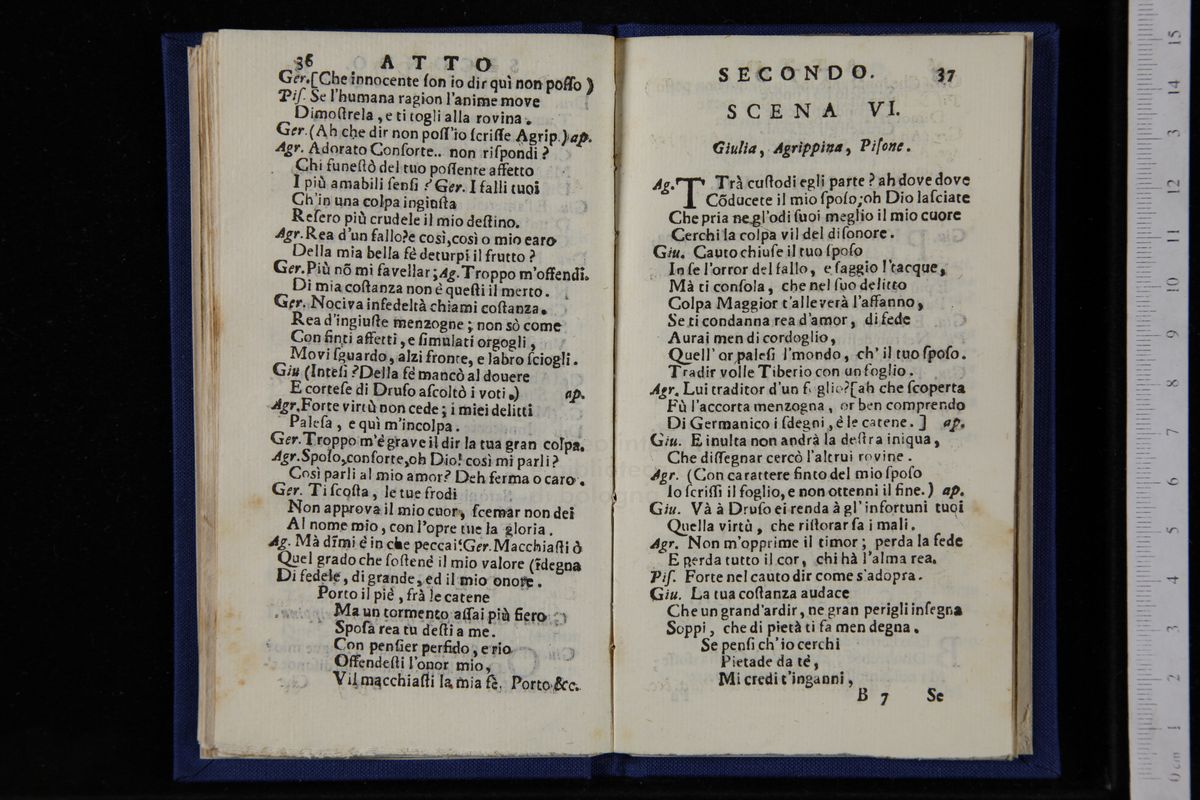 36 ATTO
Ger.[Che innocente ſon io dir quì non poſſo )
Piſ. Se l'humana ragion l'anime move
Dimoſtrela , e ti togli alla rovina .
Ger.(Ah che dir non poſſ'io ſcriſſe Agrip.)ap.
Agr. Adorato Conſorte.. non riſpondi ?
Chi funeſtò del tuo poſſente affetto
I più amabili ſenſi ? Ger. I falli tuoi
Ch'in una colpa ingiuſta
Reſero più crudele il mio deſtino.
Agr.Rea d'un fallo?e così,così o mio caro
Della mia bella fè deturpi il frutto ?
Ger.Più nõ mi favellar ; Ag.Troppo m'offendi.
Di mia coſtanza non è queſti il merto .
Ger. Nociva infedeltà chiami coſtanza.
Rea d'ingiuſte menzogne ; non sò come
Con finti affetti , e ſimulati orgogli ,
Movi ſguardo, alzi fronte, e labro ſciogli .
Giu (Inteſi ?Della fè mancò al douere
E corteſe di Druſo aſcoltò i voti .) ap.
Agr.Forte virtù non cede ; i miei delitti
Paleſa , e quì m'incolpa .
Ger.Troppo m'è grave il dir la tua gran colpa.
Agr.Spoſo,conſorte,oh Dio! così mi parli ?
Così parli al mio amor? Deh ferma o caro .
Ger. Ti ſcoſta , le tue frodi
Non approva il mio cuor, ſcemar non dei
Al nome mio , con l'opre tue la gloria .
Ag. Mà dĩmi è in che peccai? Ger.Macchiaſti ò
Quel grado che ſoſtenè il mio valore (ĩdegna
Di fedele , di grande , ed il mio onore .
Porto il piè , frà le catene
Ma un tormento aſſai più fiero
Spoſa rea tu deſti a me .
Con penſier perfido , e rio
Offendeſti l'onor mio,
Vil macchiaſti la mia fè. Porto &c.
SECONDO. 37
SCENA VI.
Giulia, Agrippina, Piſone.
Ag. TTrà cuſtodi egli parte ? ah dove dove
Cõducete il mio ſpoſo;oh Dio laſciate
Che pria negl'odi ſuoi meglio il mio cuore
Cerchi la colpa vil del diſonore .
Giu. Cauto chiuſe il tuo ſpoſo
In ſe l'orror del fallo , e ſaggio l'tacque,
Mà ti conſola , che nel ſuo delitto
Colpa Maggior t'alleverà l'affanno ,
Se ti condanna rea d'amor , di fede
Aurai men di cordoglio ,
Quell' or paleſi l'mondo , ch' il tuo ſpoſo .
Tradir volle Tiberio con un foglio .
Agr. Lui traditor d'un foglio?[ah che ſcoperta
Fù l'accorta menzogna , or ben comprendo
Di Germanico i ſdegni , è le catene . ] ap.
Giu. E inulta non andrà la deſtra iniqua ,
Che diſſegnar cercò l'altrui rovine .
Agr. (Con carattere finto del mio ſpoſo
Io ſcriſſi il foglio, e non ottenni il fine.) ap.
Giu. Và à Druſo ei renda à gl' infortuni tuoi
Quella virtù , che riſtorar ſa i mali .
Agr. Non m'opprime il timor ; perda la fede
E perda tutto il cor , chi hà l'alma rea.
Piſ. Forte nel cauto dir come s'adopra .
Giu. La tua coſtanza audace
Che un grand'ardir , ne gran perigli inſegna
Soppi , che di pietà ti fa men degna .
Se penſi ch'io cerchi
Pietade da tè ,
Mi credi t'inganni ,
B 7 Se